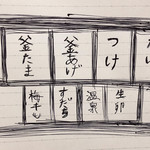 つけ
釜あげ
釜たま
生卵
温泉
すだち